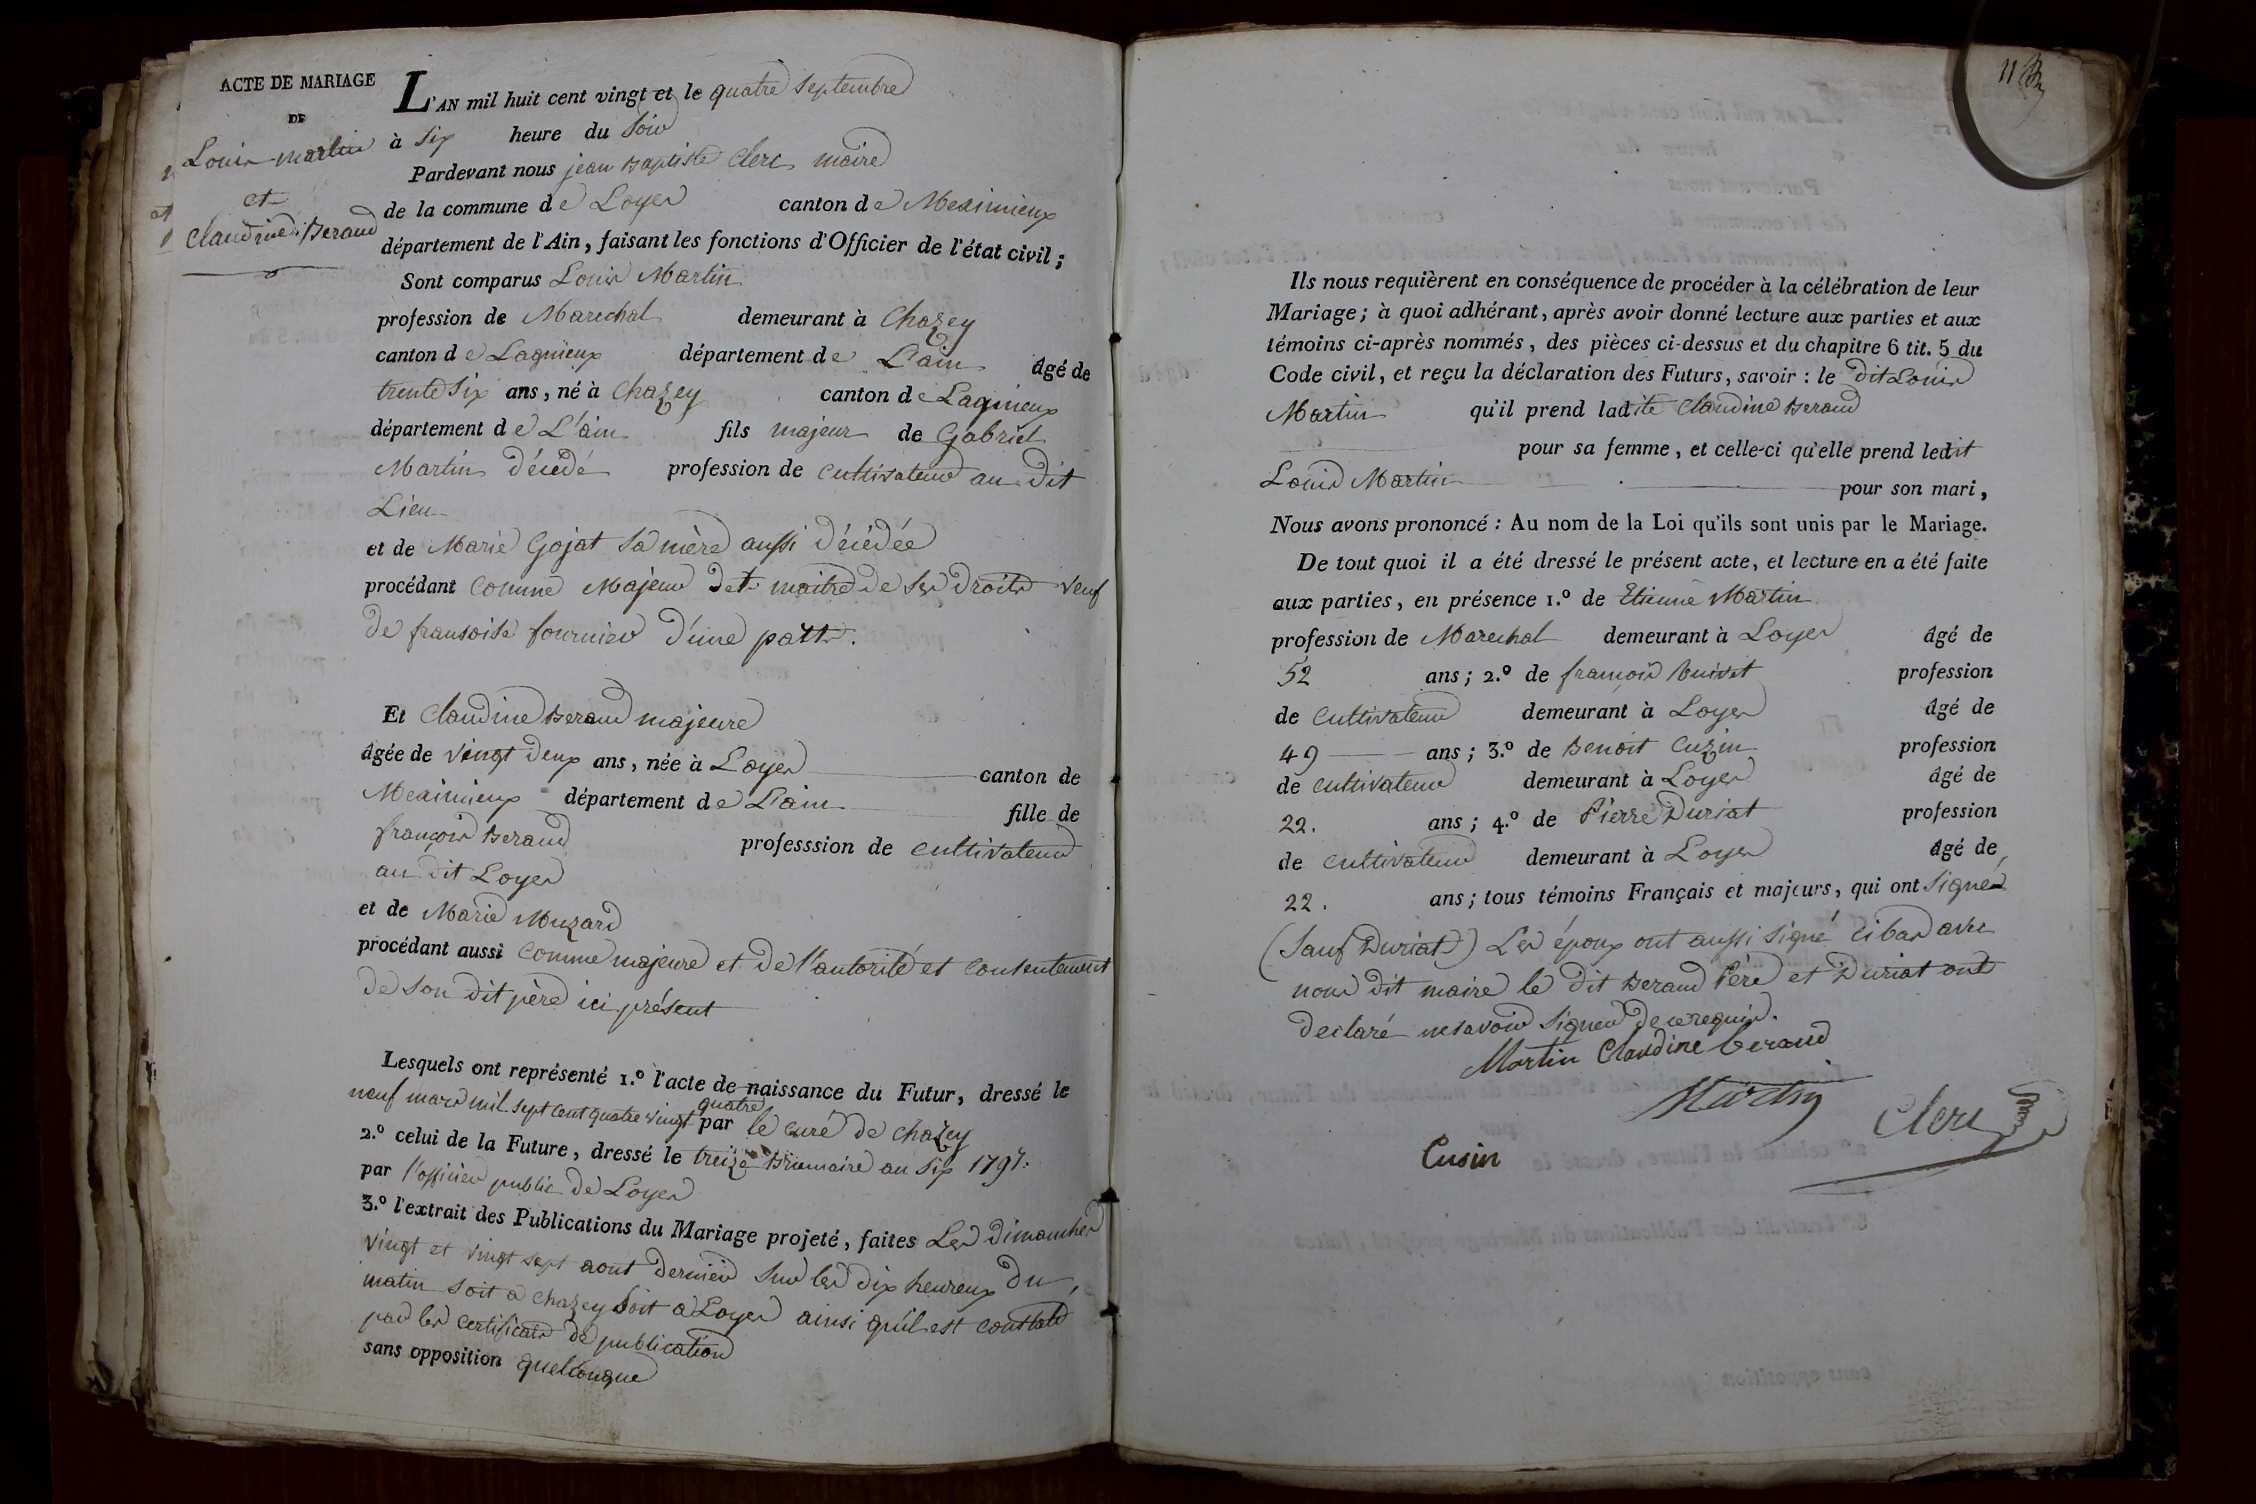 ACTE DE MARIAGE
DE
Louis martin
et
Claudine Beraud
L'AN mil huit cent vingt et le quatre Septembre
à Six heure du Soir
Pardevant nous jean Baptiste Clerc maire
de la commune de Loyes canton de Meximieux
département de l'Ain, faisant les fonctions d'Officier de l'état civil;
Sont comparus Louis Martin
profession de Marechal demeurant à Chazey
canton de Lagnieux département de L'ain âgé de
trente Six ans, né à Chazey canton de Lagnieux
département de L'ain fils majeur de Gabriel
Martin décédé profession de Cultivateur au dit
Lieu
et de Marie Gojat Sa mère aussi décédée
procédant Comme Majeur et maitre de Ses droits veuf
de fransoise fournier d'une part.
Et Claudine Beraud majeure
âgée de vingt deux ans, née à Loyes canton de
Meximieux département de L'ain fille de
françois Beraud professsion de cultivateur
au dit Loyes
et de Marie Muzard
procédant aussi Comme majeure et de l'autorité et consentement
de Son dit père ici présent
Lesquels ont représenté 1.º l'acte de naissance du Futur, dressé le
neuf mars mil sept cent quatre vingt quatre par le curé de chazey
2.º celui de la Future, dressé le treize Brumaire an Six 1797.
par l'officier public de Loyes
3.º l'extrait des Publications du Mariage projeté, faites Les dimanches
vingt et vingt sept aout dernier Sur les dix heureux du
matin Soit a chazey Soit a Loyes ainsi qu'il est constaté
par les certificats de publication
sans opposition quelconque
11
Ils nous requièrent en conséquence de procéder à la célébration de leur
Mariage; à quoi adhérant, après avoir donné lecture aux parties et aux
témoins ci-après nommés, des pièces ci-dessus et du chapitre 6 tit. 5 du
Code civil, et reçu la déclaration des Futurs, savoir: le dit Louis
Martin qu'il prend ladite Claudine Beraud
pour sa femme, et celle-ci qu'elle prend ledit
Louis Martin pour son mari,
Nous avons prononcé: Au nom de la Loi qu'ils sont unis par le Mariage.
De tout quoi il a été dressé le présent acte, et lecture en a été faite
aux parties, en présence 1.º de Etienne Martin
profession de Marechal demeurant à Loyes âgé de
52 ans; 2.º de françois profession
de Cultivateur demeurant à Loyes âgé de
49 ans; 3.º de Benoit Cuzin profession
de cultivateur demeurant à Loyes âgé de
22. ans; 4.º de Pierre Duriat profession
de cultivateur demeurant à Loyes âgé de
22. ans; tous témoins Français et majeurs, qui ont Signés
(Sauf Duriat) Les époux ont aussi Signé ci bas avec
nous dit maire le dit Beraud Père et Duriat ont
declaré ne savoir Signer de ce requis.
Martin Claudine beraud
Martin
Clerc
Cusin